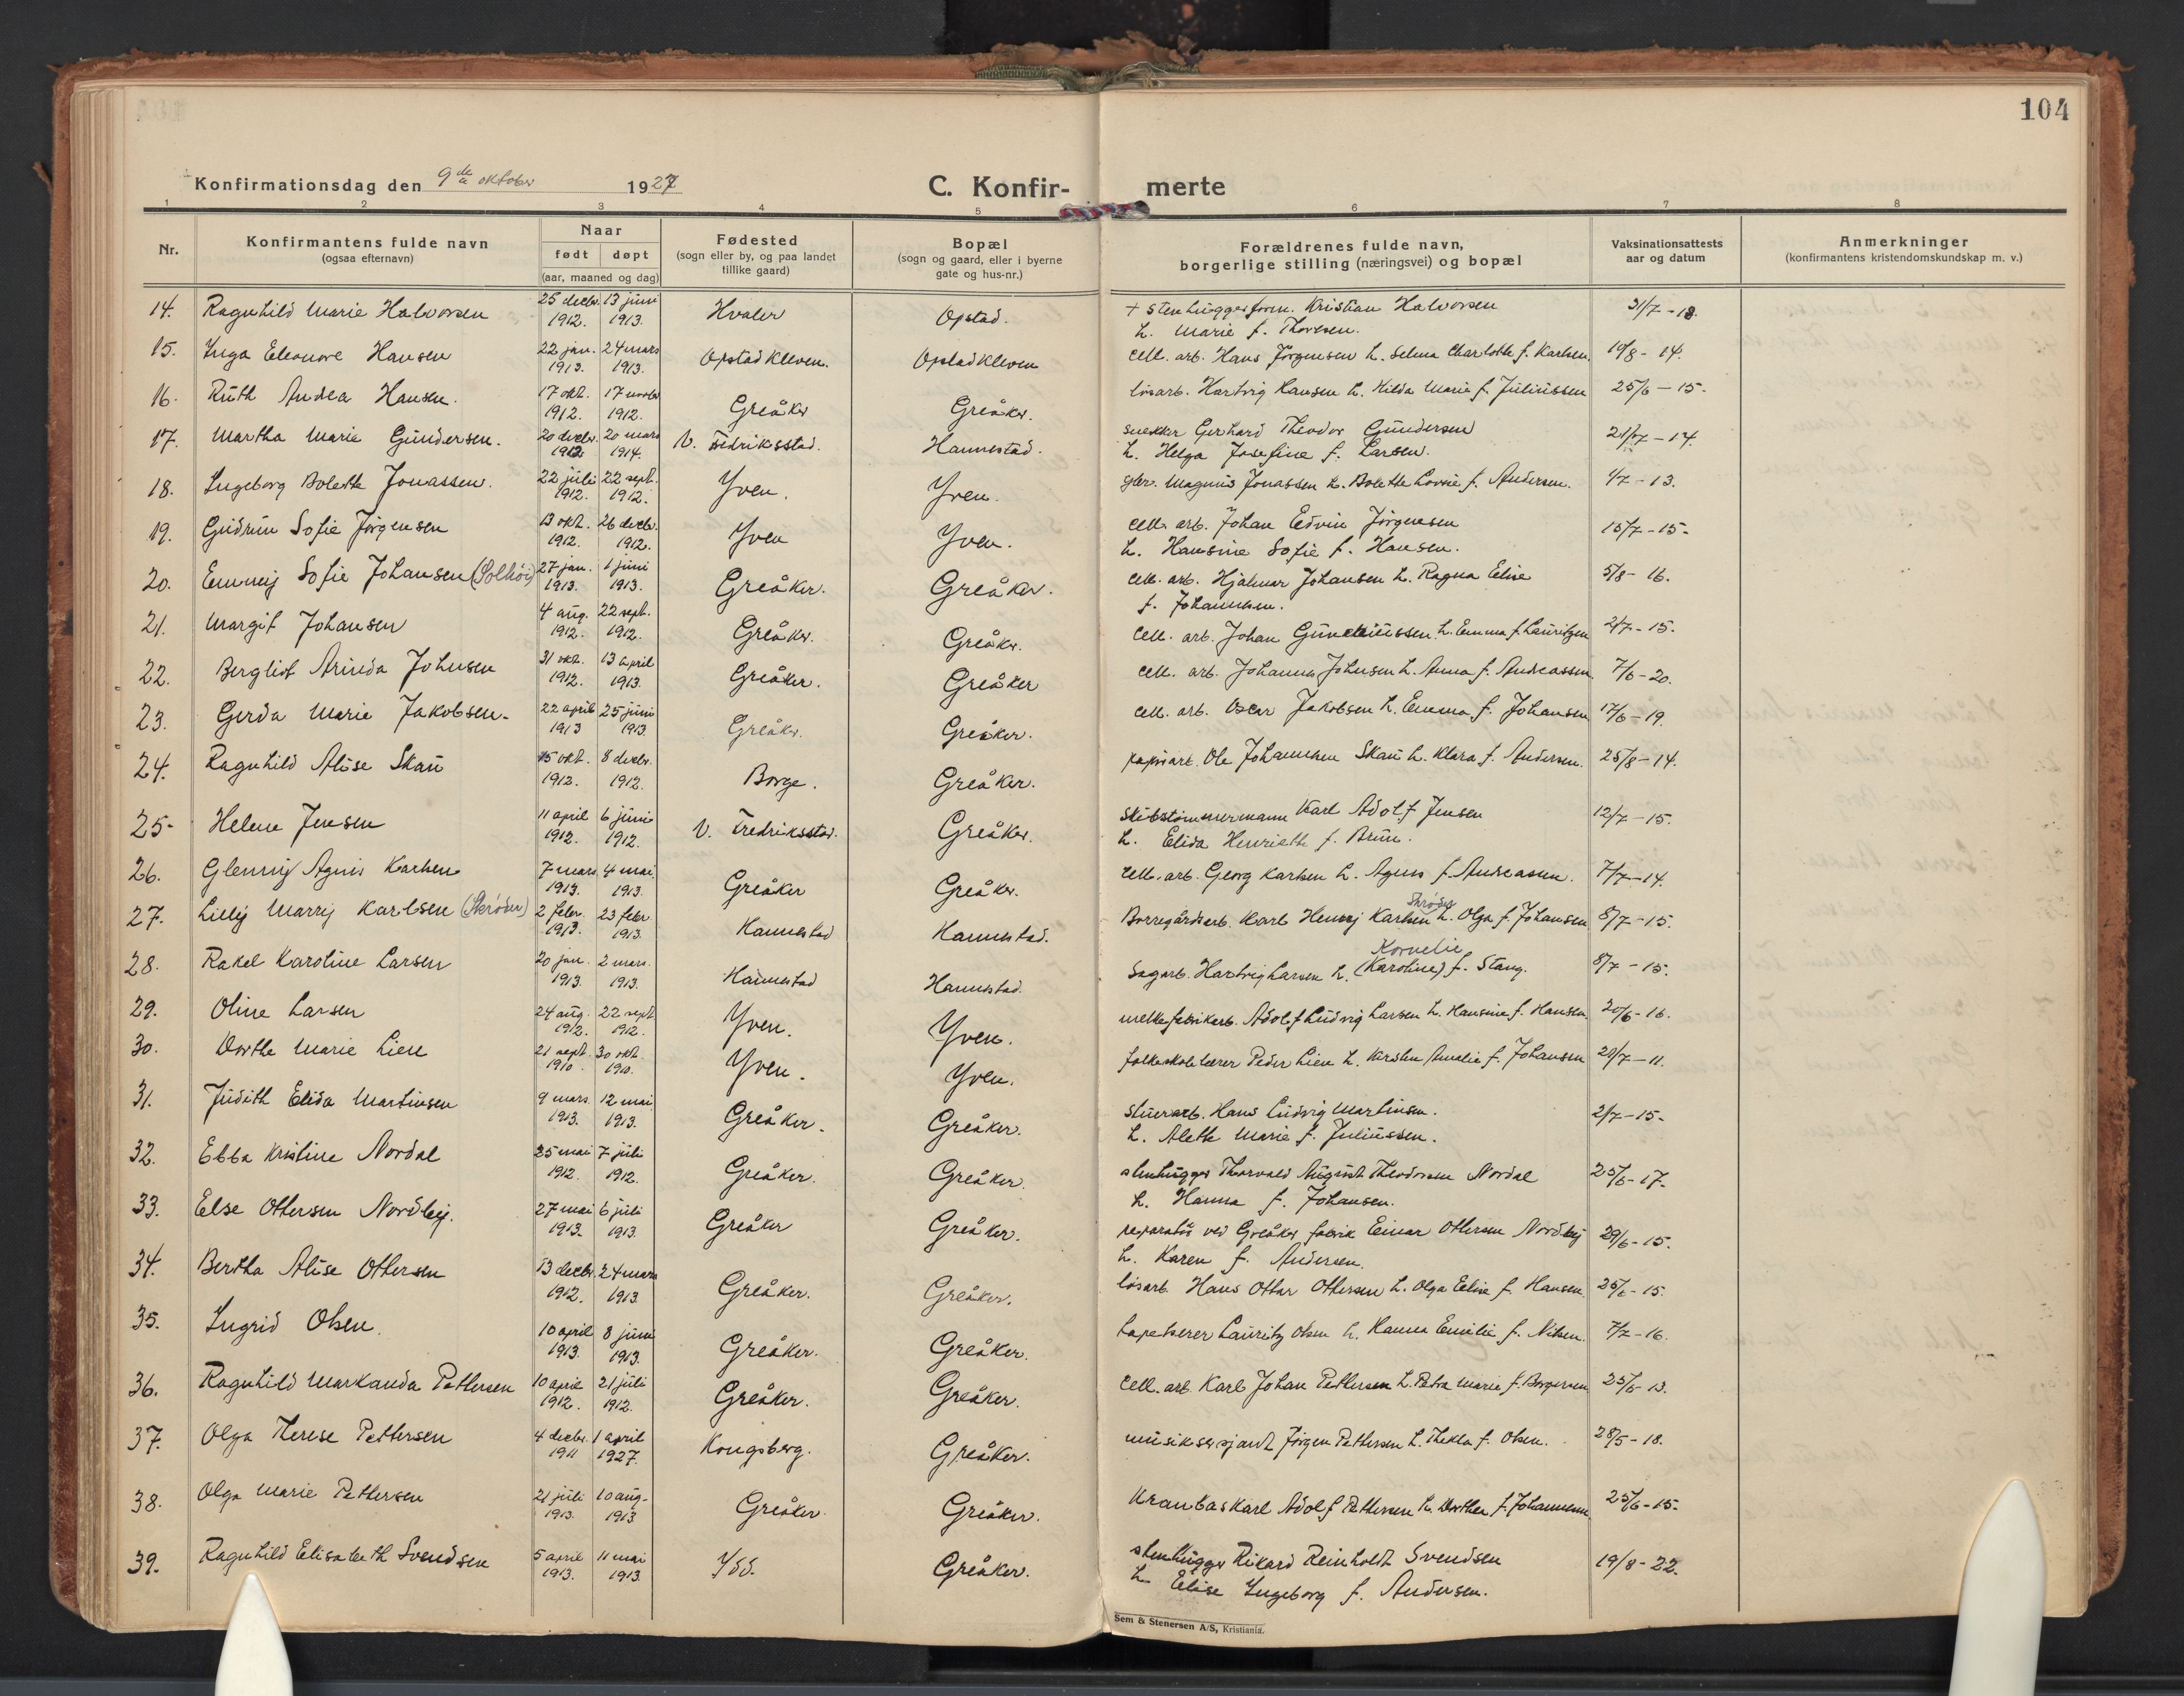 104
Konfirmationsdag den 9de oktober 1927
C. Konfir- merte
1 2 3 4 5 6 7 8
Nr. Konfirmantens fulde navn Naar Fødested Bopæl Forældrenes fulde navn, Vaksinationsattests Anmerkninger
(ogsaa efternavn) født døpt (sogn eller by, og paa landet (sogn og gaard, eller i byerne borgerlige stilling (næringsvei) og bopæl aar og datum (konfirmantens kristendomskundskap m. v.)
(aar, maaned og dag) tillike gaard) gate og hus-nr.)
14. Ragnhild Marie Halvorsen 25 decbr. 13 juni Hvaler Opstad. + stenhuggerform. Kristian Halvorsen 31/7-18.
1912. 1913. h. Marie f. Thoresen.
15. Inga Eleonore Hansen 22 jan. 24 mars Opstad Kleven. Opstad Kleven cell. arb. Hans Jörgensen h. Selma Charlotte f. Karlsen. 19/8-14.
1913. 1913.
16. Ruth Andrea Hansen. 17 okt. 17 novbr Greåker Greåker. lösarb. Hartvig Hansen h. Hilda Marie f. Juliussen 25/6-15.
1912. 1912.
17. Martha Marie Gundersen. 20 decbr. 20 mars V. Fredriksstad. Hannestad. snekker Gerhard Theodor Gundersen 21/7-14.
1913 1914. h. Helga Josefine f. Larsen.
18. Ingeborg Bolette Jonassen. 22 juli 22 sept. Yven. Yven. gbr. Magnus Jonassen h. Bolette Lovise f. Andersen. 4/7-13.
1912. 1912.
19. Gudrun Sofie Jörgensen 13 okt. 26 decbr. Yven Yven. cell. arb. Johan Edvin Jörgensen 15/7-15.
1912. 1912. h. Hansine Sofie f. Hansen.
20. Emmy Sofie Johansen (Solhöi) 27 jan. 1 juni Greåker. Greåker. cell. arb. Hjalmar Johansen h. Ragna Elise 5/8-16.
1913. 1913. f. Johannesen.
21. Margit Johansen 4 aug. 22 sept. Greåker. Greåker. cell. arb. Johan h. Emma f. Lauritzen 2/7-15.
1912. 1912.
22. Bergliot Arinda Johnsen 31 okt. 13 april Greåker. Greåker cell. arb. Johannes Johnsen h. Anna f. Andreassen 7/6-20.
1912. 1913.
23. Gerda Marie Jakobsen. 22 april 25 juni Greåker. Greåker. cell. arb. Oscar Jakobsen h. Emma f. Johansen 17/6-19.
1913 1913.
24. Ragnhild Alise Skau 15 okt. 8 decbr. Borge. Greåker. papirarb. Ole Johannesen Skau h. Klara f. Andersen. 25/8-14.
1912. 1912.
25. Helene Jensen 11 april 6 juni V. Fredriksstad. Greåker. Skibstömmermann Karl Adolf Jensen 12/7-15.
1912. 1912. h. Elida Henriette f. Brun.
26. Glenny Agnes Karlsen 7 mars 4 mai. Greåker Greåker. cell. arb. Georg Karlsen h. Agnes f. Andreassen. 7/7-14.
1913. 1913.
27. Lilly Marry Karlsen (Skröder) 2 febr. 23 febr Hannestad Hannestad. Borregårdsarb. Karl Henry Karlsen Skröder h. Olga f. Johansen 8/7-15.
1913. 1913.
Kornelie
28. Rakel Karoline Larsen 20 jan. 2 mars. Hannestad Hannestad. Sagarb. Hartvig Larsen h. (Karoline) f. Stang. 8/7-15.
1913. 1913.
29. Oline Larsen 24 aug. 22 sept Yven. Yven. melkefabrikarb. Adolf Ludvig Larsen h. Hansine f. Hansen. 20/6-16.
1912. 1912.
30. Dorthe Marie Lien 21 sept. 30 okt. Yven. Yven. folkeskolelærer Peder Lien h. Kirsten Amalie f. Johansen 20/7-11.
1910. 1910.
31. Judith Elida Martinsen 9 mars. 12 mai Greåker. Greåker. stuerarb. Hans Ludvig Martinsen. 2/7-15.
1913. 1913. h. Alette Marie f. Juliussen.
32. Ebba Kristine Nordal 25 mai 7 juli Greåker. Greåker. stenhugger Thorvald August Theodorsen Nordal 25/6-17.
1912. 1912. h. Hanna f. Johansen.
33. Else Ottersen Nordby. 27 mai 6 juli Greåker Greåker. reparatör ved Greåker fabrik Einar Ottersen Nordby 29/6-15.
1913. 1913. h. Karen f. Andersen.
34. Bertha Alise Ottersen 13 decbr. 24 mars Greåker. Greåker. lösarb. Hans Ottar Ottersen h. Olga Eline f. Hansen. 25/6-15.
1912. 1913.
35. Ingrid Olsen. 10 april 8 juni Greåker. Greåker. tapetserer Lauritz Olsen h. Hanna Emilie f. Nilsen. 7/7-16.
1913. 1913.
36. Ragnhild Markanda Pettersen 10 april 21 juli Greåker. Greåker. cell. arb. Karl Johan Pettersen h. Petra Marie f. Borgersen 25/6-13.
1912. 1912.
37. Olga Therese Pettersen 4 decbr. 1 april Kongsberg. Greåker. musiksersjant Jörgen Pettersen h. Thekla f. Olsen. 28/5-18.
1911 1927.
38. Olga Marie Pettersen 21 juli 10 aug. Greåker. Greåker. Kranbas Karl Adolf Pettersen h. Dorthea f. Johannesen 25/6-15.
1913. 1913
39. Ragnhild Elisabeth Svendsen 5 april 11 mai Idd. Greåker. stenhugger Rikard Reinholdt Svendsen 19/8-22.
1913. 1913. h Elise Ingeborg f. Andersen.
Sem & Stenersen A/S, Kristiania.